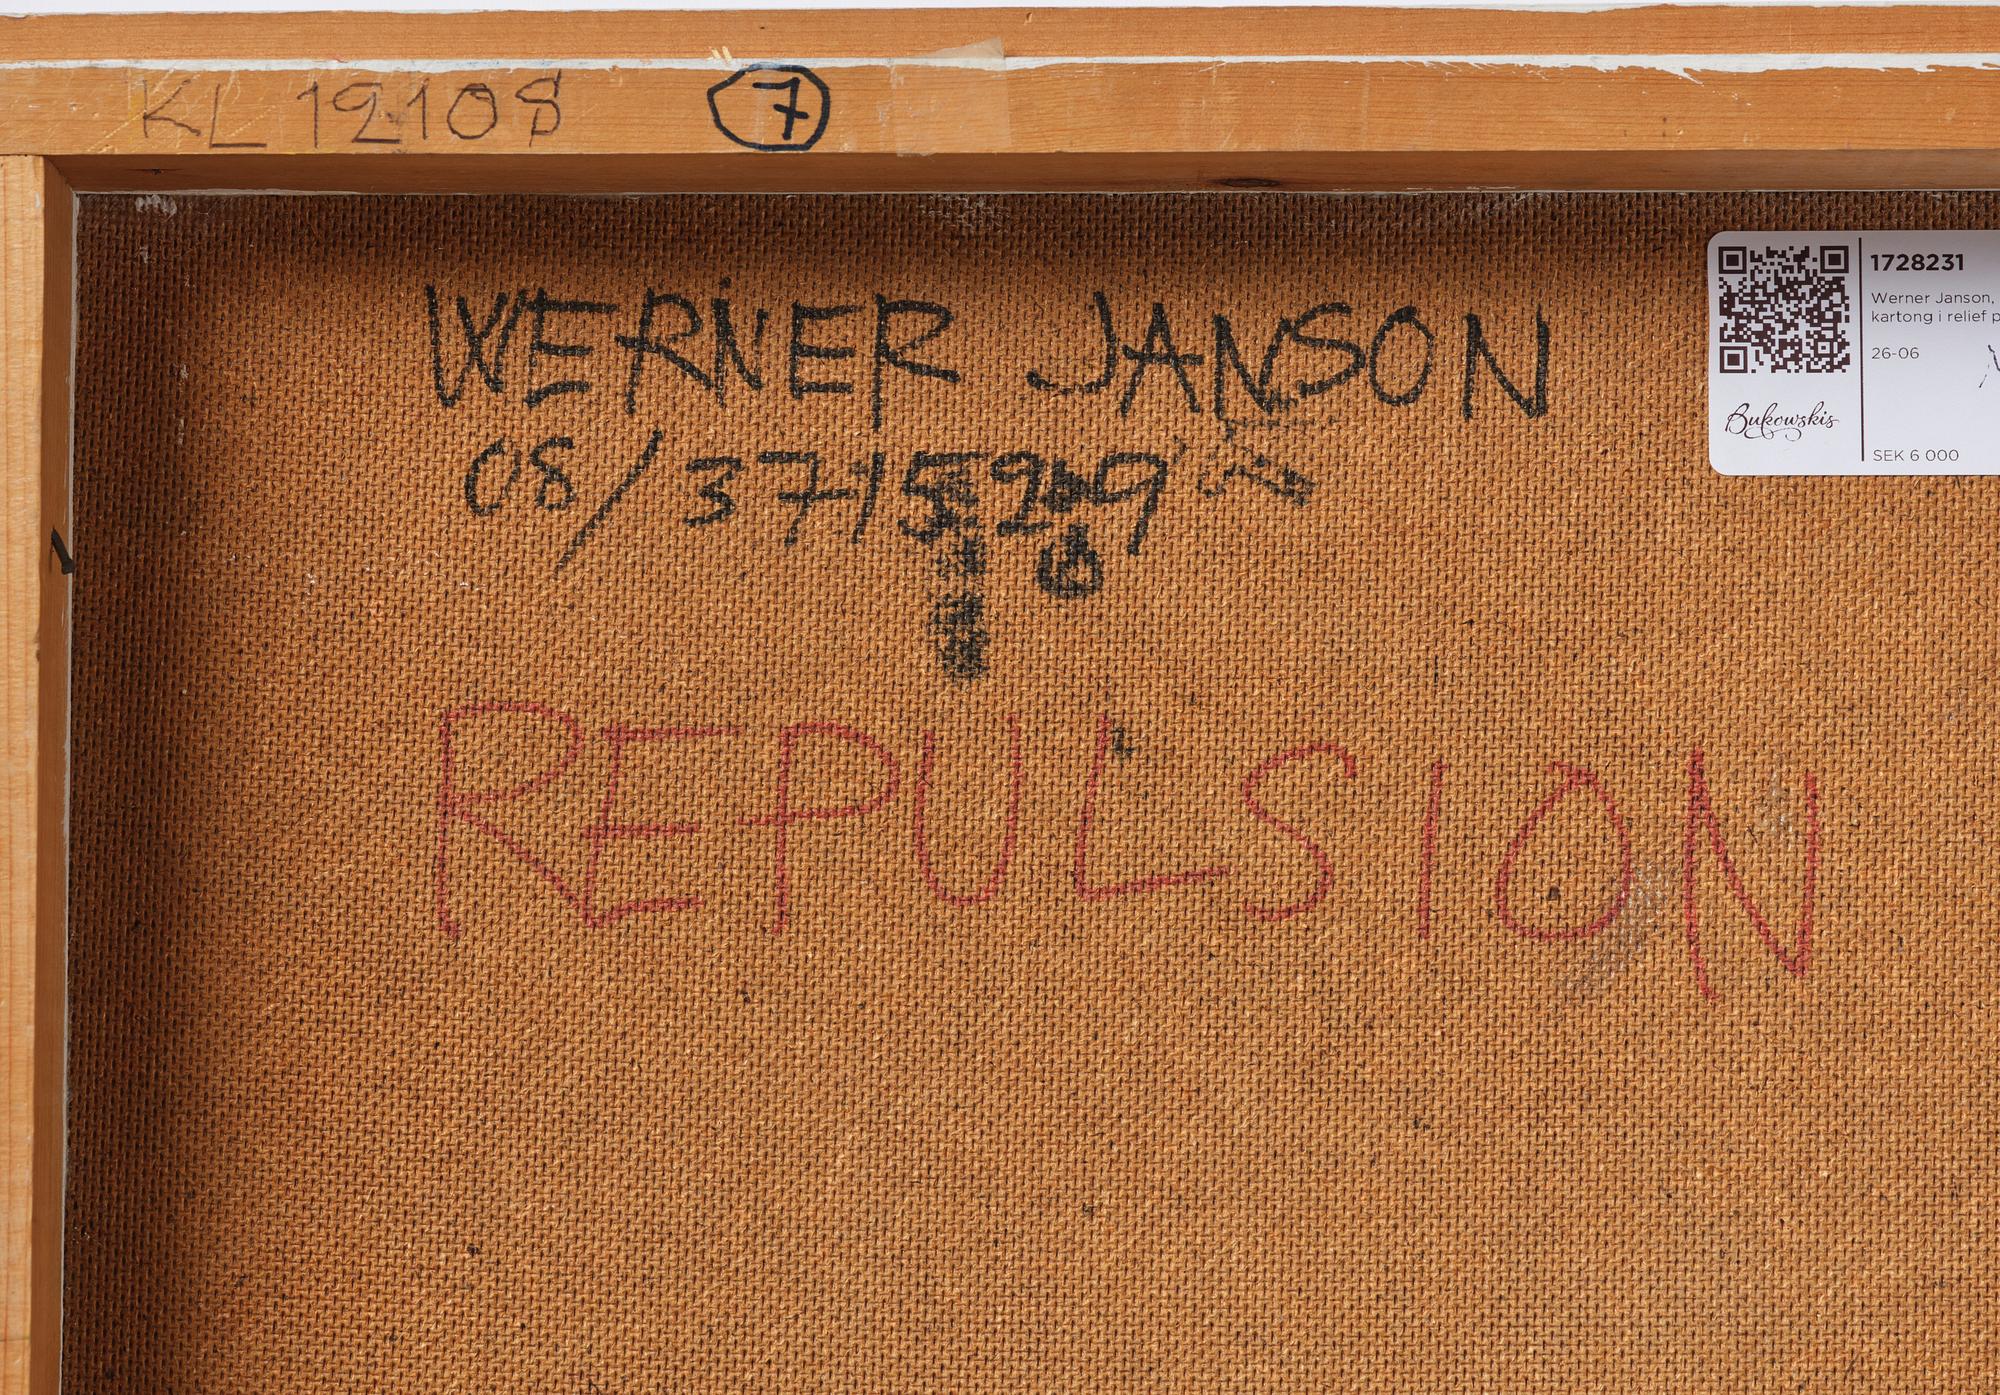 KL 12108 7
WERNER JANSON
08/
REPULSION
1728231
Werner Janson,
kartong i relief p
26-06
Bukowskis
SEK 6 000